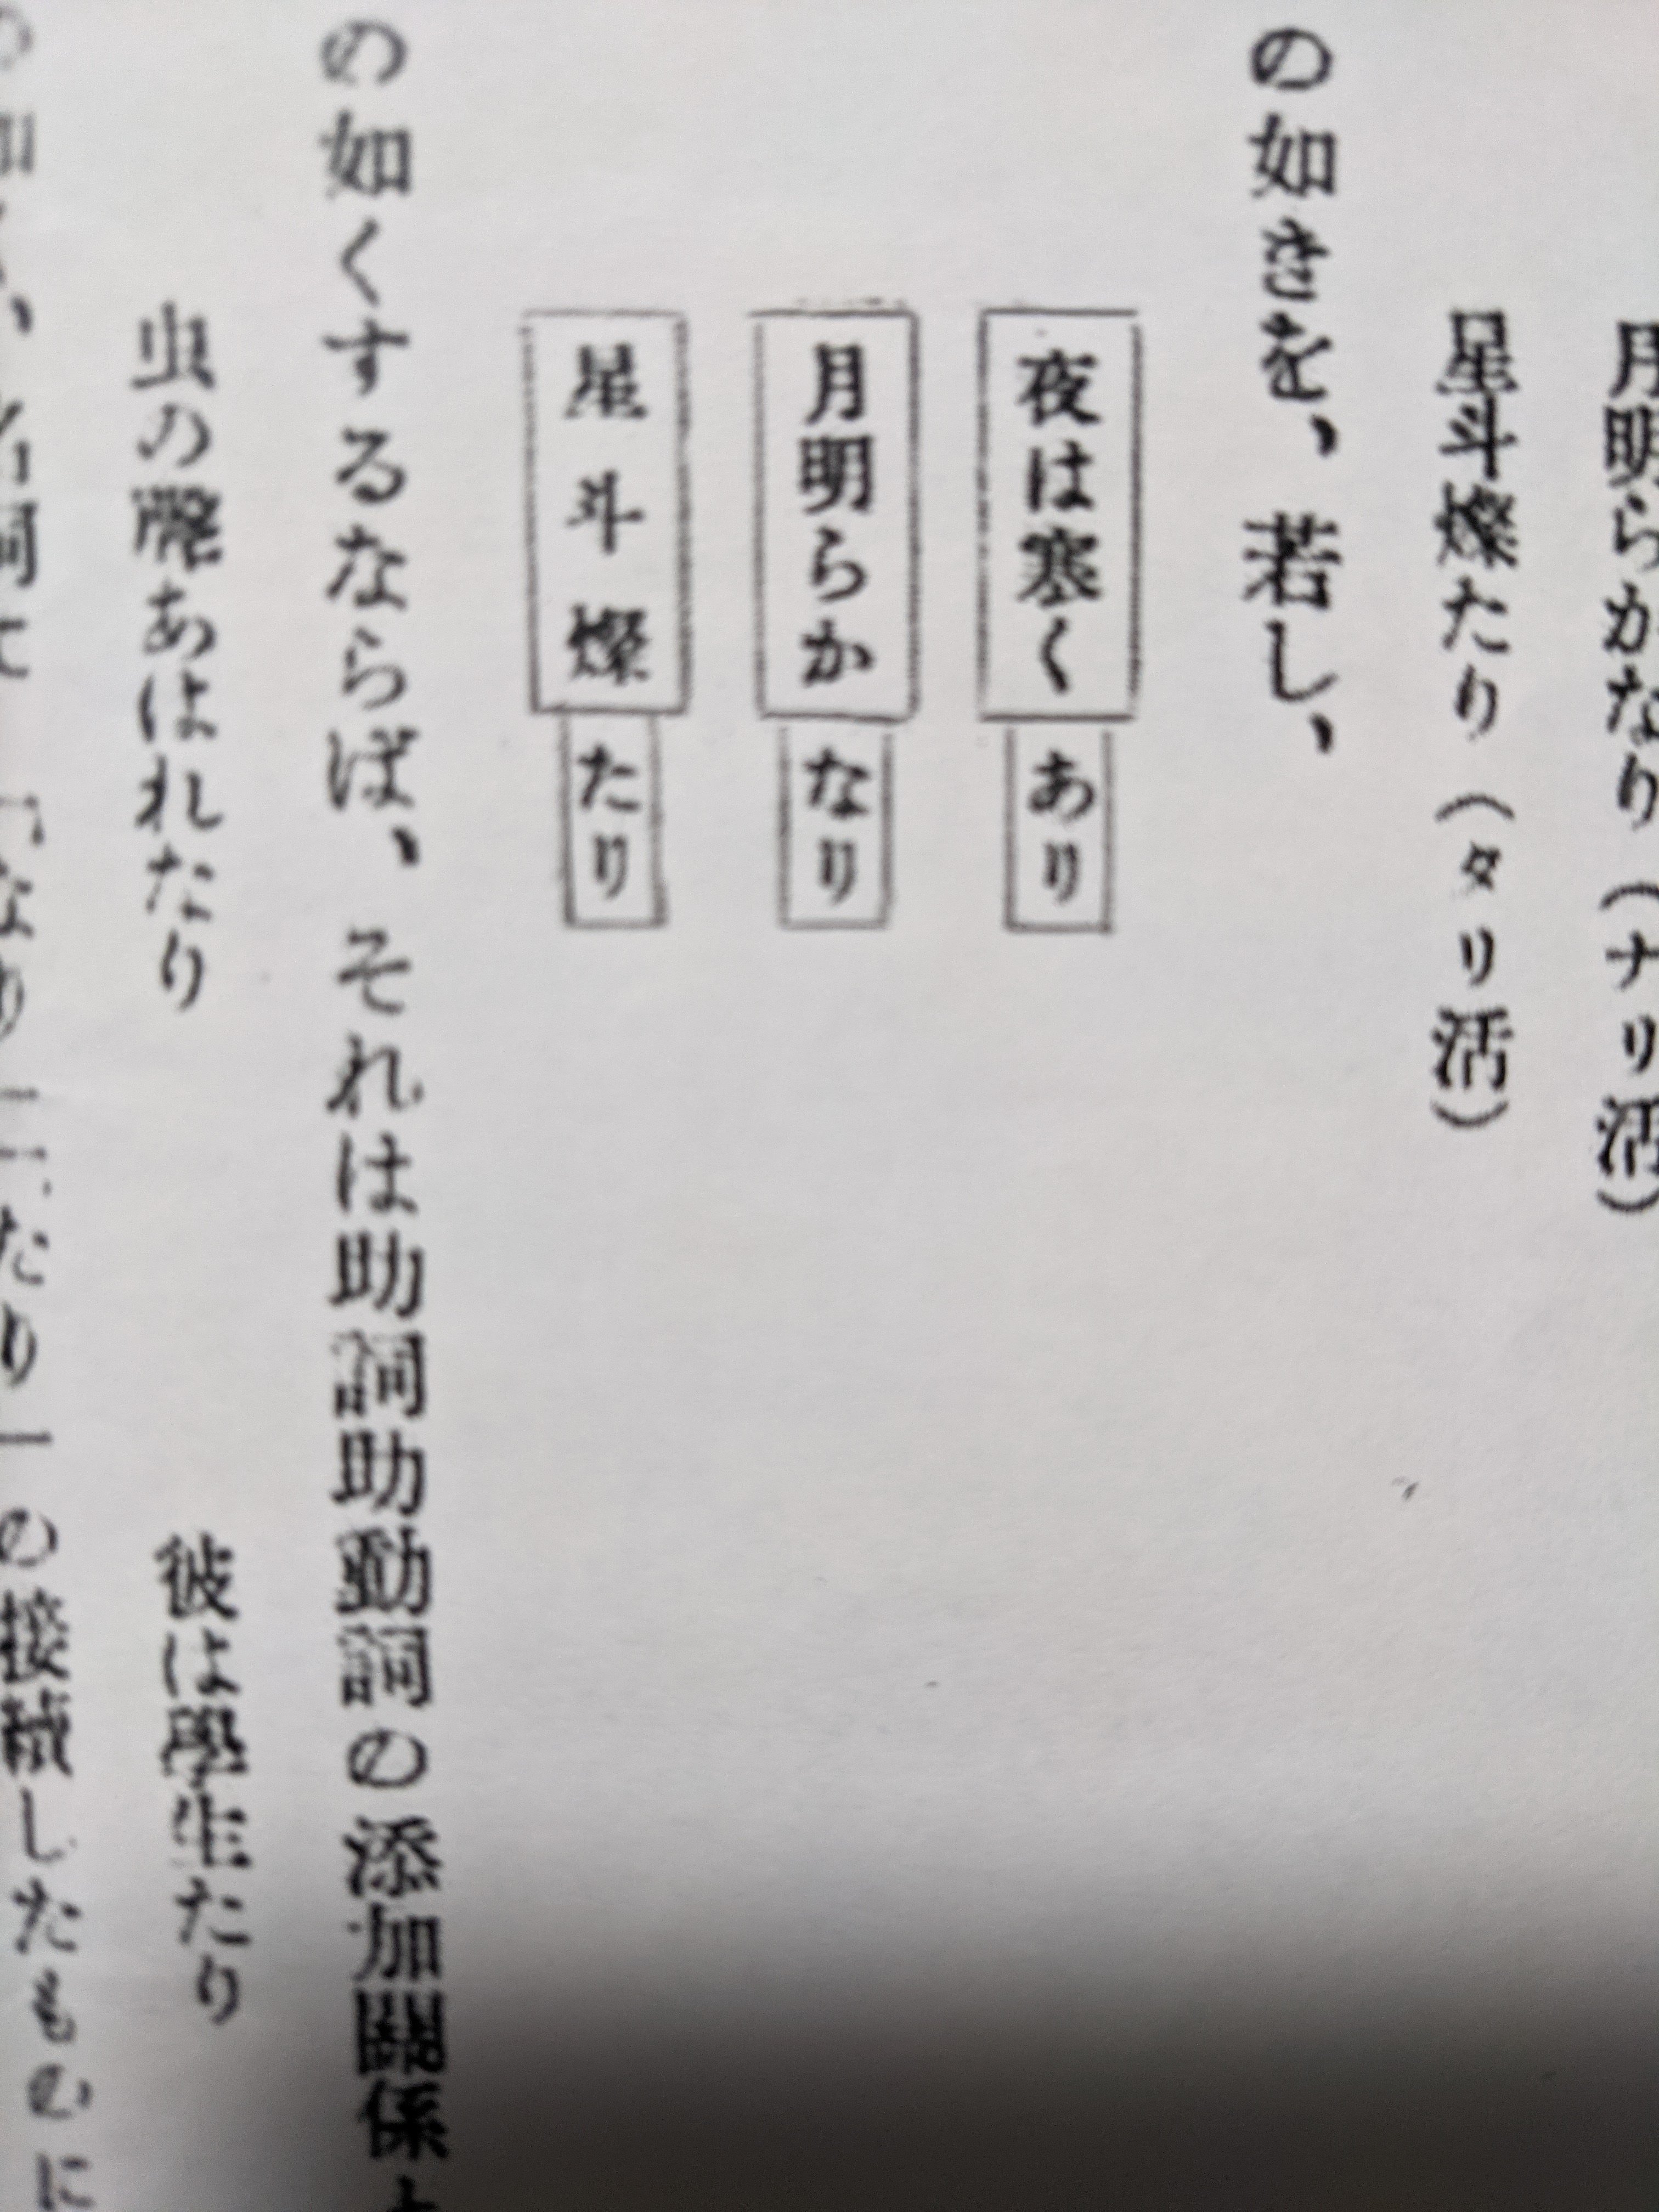 月明らかなり(ナリ活)
星斗燦たり(タリ活)
の如きを、若し、
夜は寒く あり
月明らか なり
星斗燦 たり
の如くするならば、それは助詞助動詞の添加關係
虫の聲あはれなり 彼は學生たり
の接續したものに